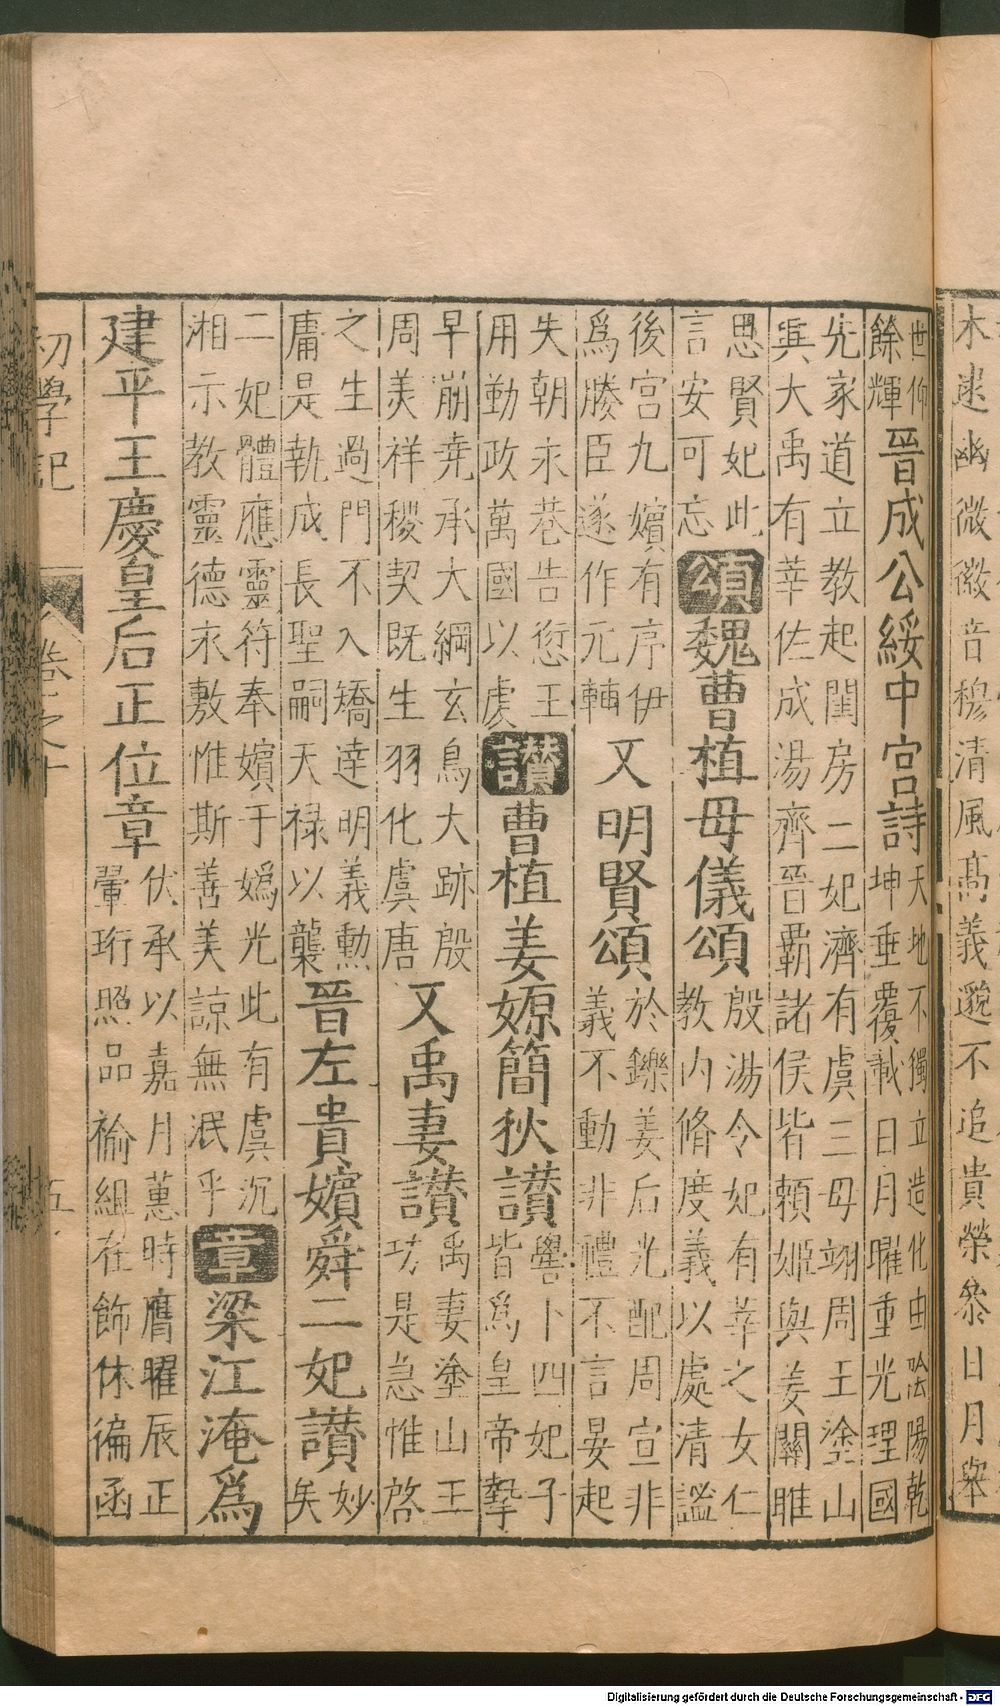 木逮幽微徽音穆清風髙義邈不追貴榮叅日月舉
世仰
餘輝
晉成公綏中宮詩
天地不獨立造化由陰陽乾
坤垂覆載日月曜重光理國
先家道立教起閨房二妃濟有虞三母翊周王塗山
興大禹有莘佐成湯齊晉霸諸侯皆頼姬與姜關雎
思賢妃此
言安可忘
頌魏曹植母儀頌
殷湯令妃有莘之女仁
教内脩度義以處清謐
後宮九嬪有序伊
爲媵臣遂作元輔
又明賢頌
於鑠姜后光配周宣非
義不動非禮不言晏起
失朝永巷告愆王
用勤政萬國以虔
讃曹植姜嫄簡狄讃
嚳卜四妃子
皆爲皇帝摯
早崩尭承大綱玄鳥大跡殷
周美祥稷契既生羽化虞唐
又禹妻讃
禹妻塗山王
功是急惟啓
之生過門不入矯達明義勲
庸是執成長聖嗣天禄以襲
晉左貴嬪舜二妃讃
妙
矣
二妃體應靈符奉嬪于嬀光此有虞沉
湘示教靈德永敷惟斯善美諒無泯乎
章梁江淹爲
建平王慶皇后正位章
伏承以嘉月蕙時膺曜辰正
翬珩照品褕組在飾休徧函
初學記 卷之十 五
Digitalisierung gefördert durch die Deutsche Forschungsgemeinschaft - DFG